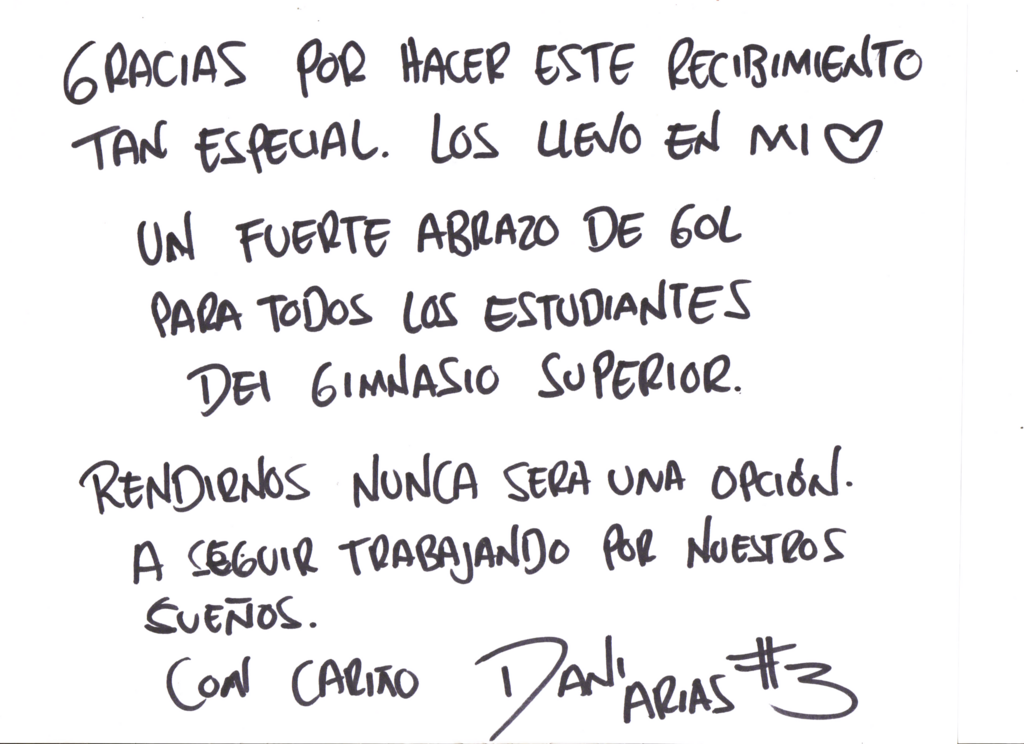 GRACIAS POR HACER ESTE RECIBIMIENTO
TAN ESPECIAL. LOS LLEVO EN MI ♡
UN FUERTE ABRAZO DE GOL
PARA TODOS LOS ESTUDIANTES
DEl GIMNASIO SUPERIOR.
RENDIRNOS NUNCA SERA UNA OPCIÓN.
A SEGUIR TRABAJANDO POR NUESTROS
SUEÑOS.
CON CARIÑO DANI ARIAS #3